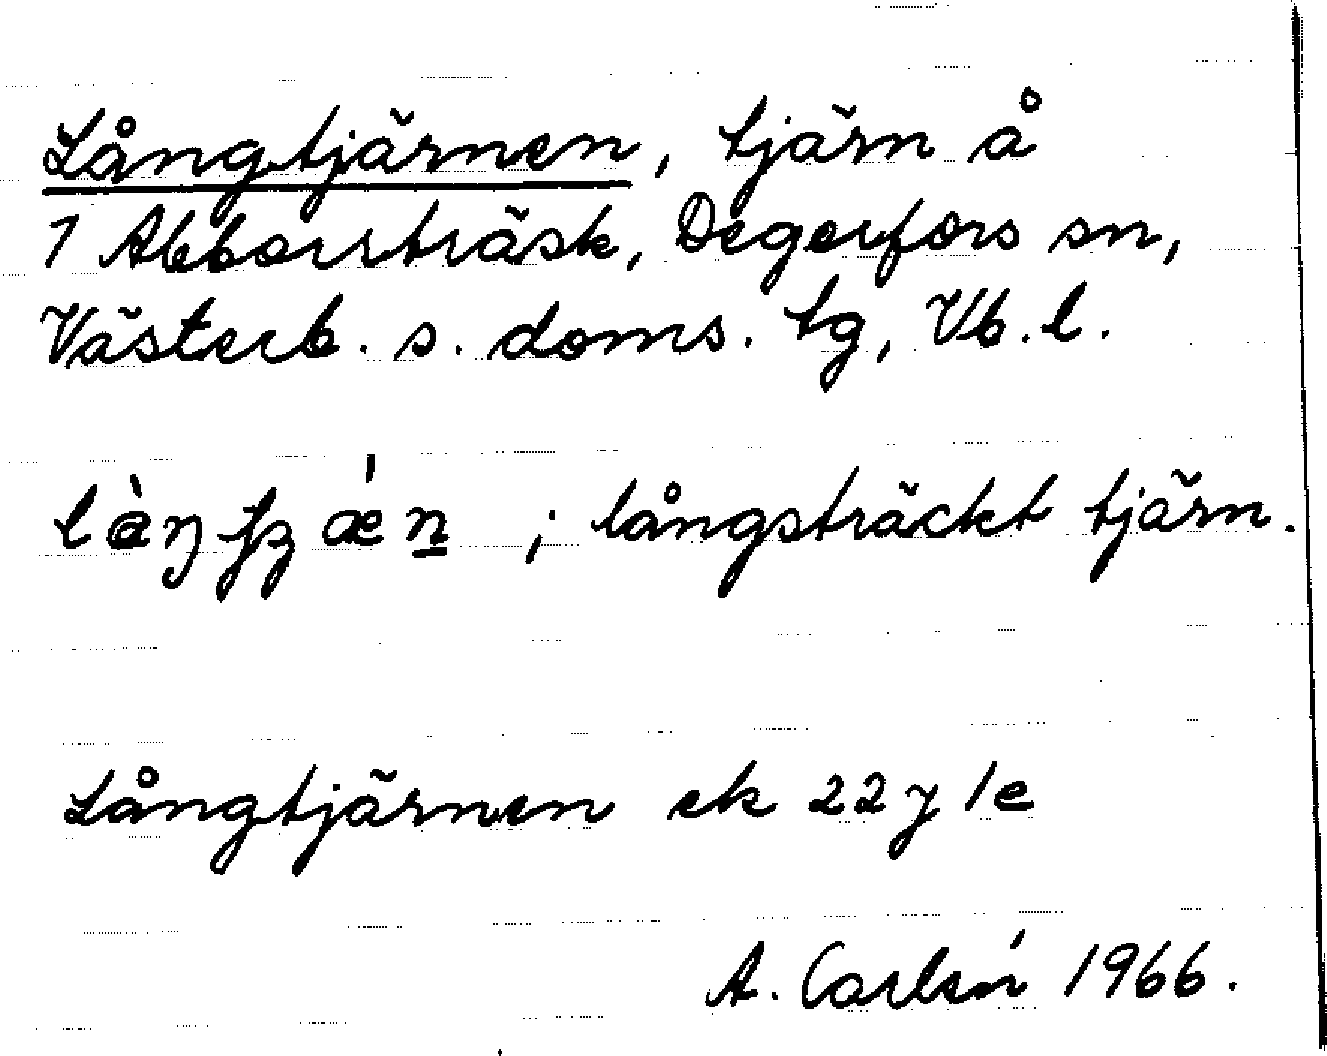 Långtjärnen, tjärn å
1 Abborrträsk, Degerfors sn,
Västerb. s. doms. tg, Vb. l.
; långsträckt tjärn.
Långtjärnen ek 22 j 1e
A. Carlén 1966.